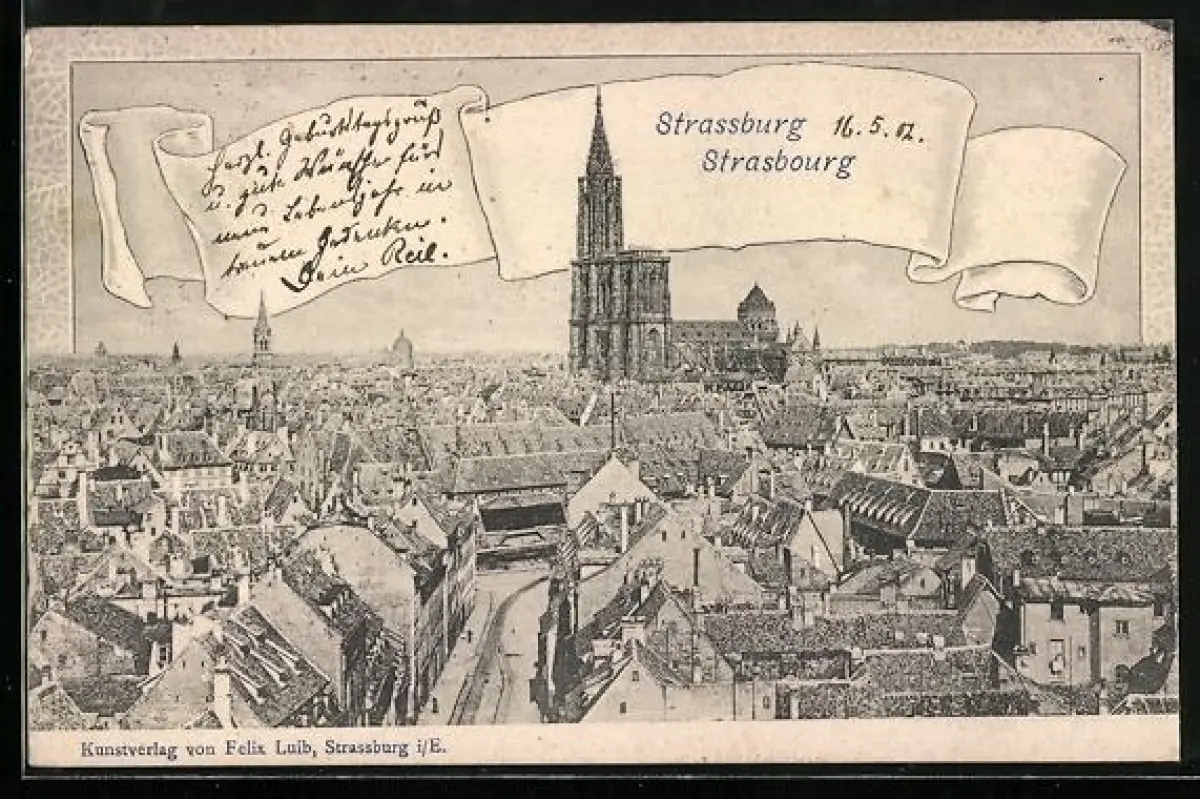 Herzl. Geburtstagsgrüß
u. gute Wünsche für
neues Lebensjahr in
treuem Gedenken.
Dein Reil.
Strassburg 16.5.02.
Strasbourg
Kunstverlag von Felix Luib, Strassburg i/E.